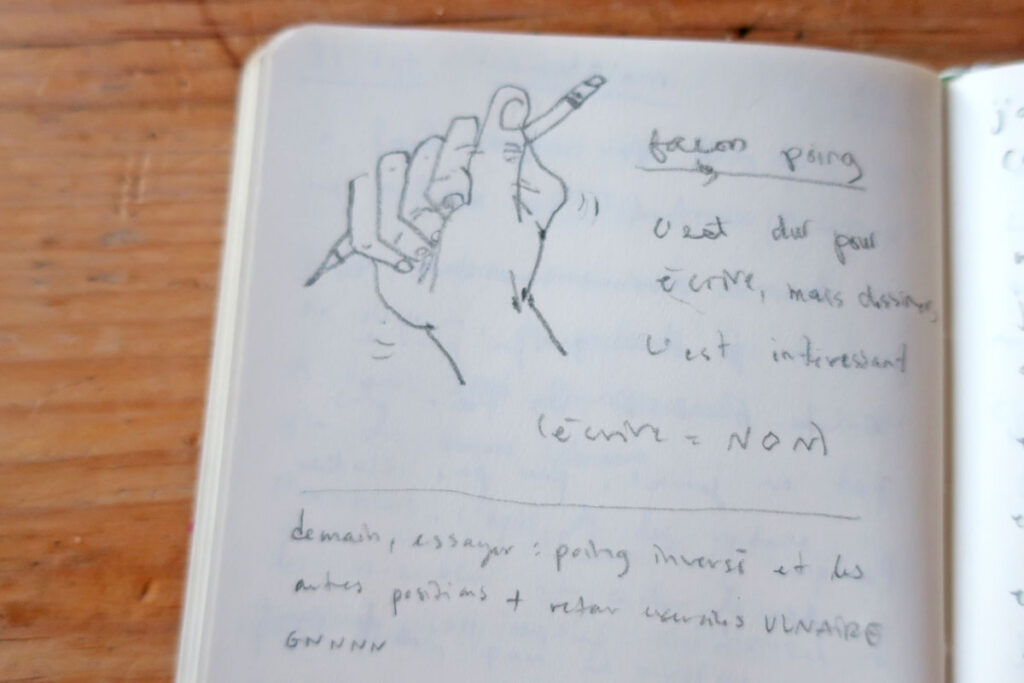 façon poing
c'est dur pour
écrire, mais dessiner,
c'est intéressant
(écrire = NON)
demain, essayer : poing inversé et les
autres positions + refaire exercices ULNAIRE
GNNNN
j'a